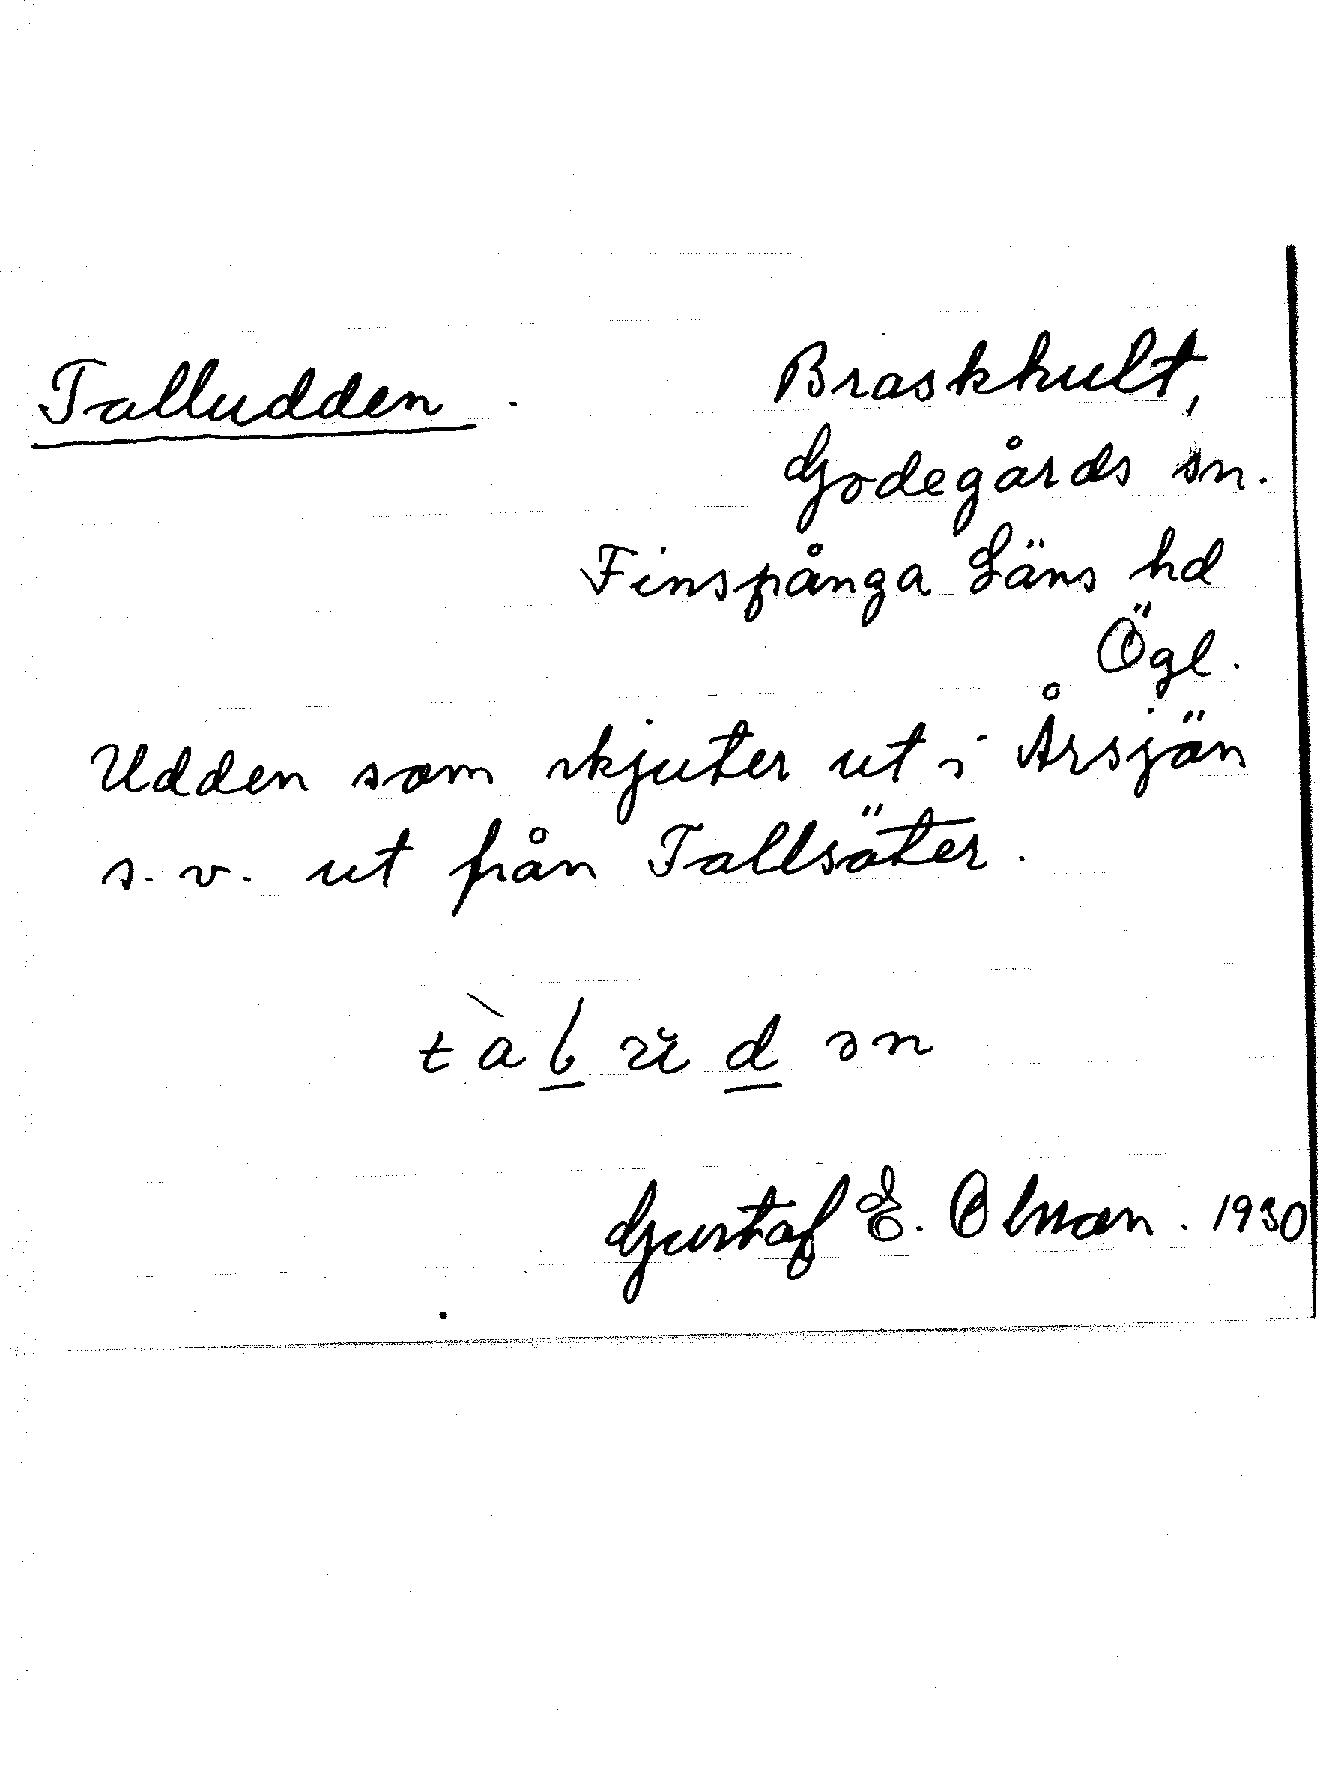 Talludden. Braskhult,
Godegårds sn.
Finspånga Läns hd
Ögl.
Udden som skjuter ut i Årsjön
s. v. ut från Tallsäter.
Gustaf E. Olsson. 1930